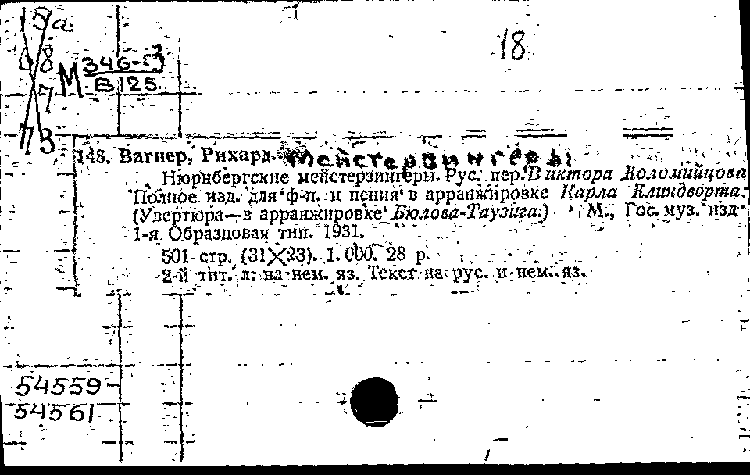 15а
18
М 346-3
В 125
73
143. Вагнер, Рихард. Мейстерзингеры
Нюрнбергские мейстерзингеры. Рус. пер. Виктора Коломийцова
Полное изд. для ф-п. и пения в арранжировке Карла Клиндворта.
(Увертюра—в арранжировке Бюлова-Таузига.) М., Гос. муз. изд.
1-я Образцовая тип. 1931.
501 стр. (31×23). 1.000. 28 р.
2-й тит. л. на нем. яз. Текст на рус. и нем. яз.
54559-
54561